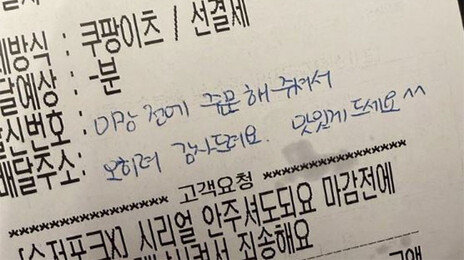 제방식 : 쿠팡이츠 / 선결제
달예상 : -분
신번호 : 마감 전에 주문해 주셔서
배달주소: 오히려 감사드려요. 맛있게 드세요^^
************ 고객요청 ************
[수저포크X] 시리얼 안주셔도되요 마감전에
죄송해요